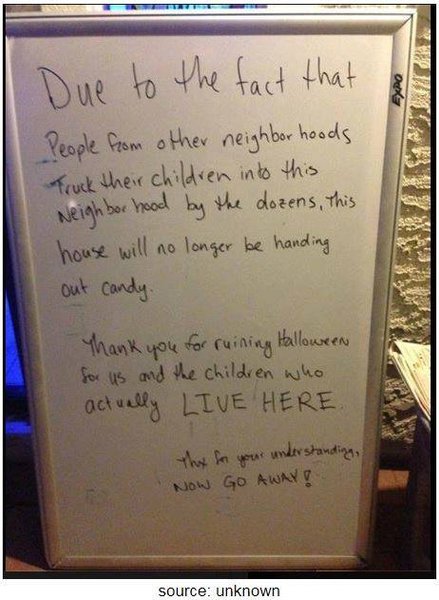 Due to the fact that
People from other neighborhoods
Truck their children into this
Neighborhood by the dozens, this
house will no longer be handing
out candy.
Thank you for ruining Halloween
for us and the children who
actually LIVE HERE.
Thx for your understanding,
NOW GO AWAY!
EXPO
source: unknown